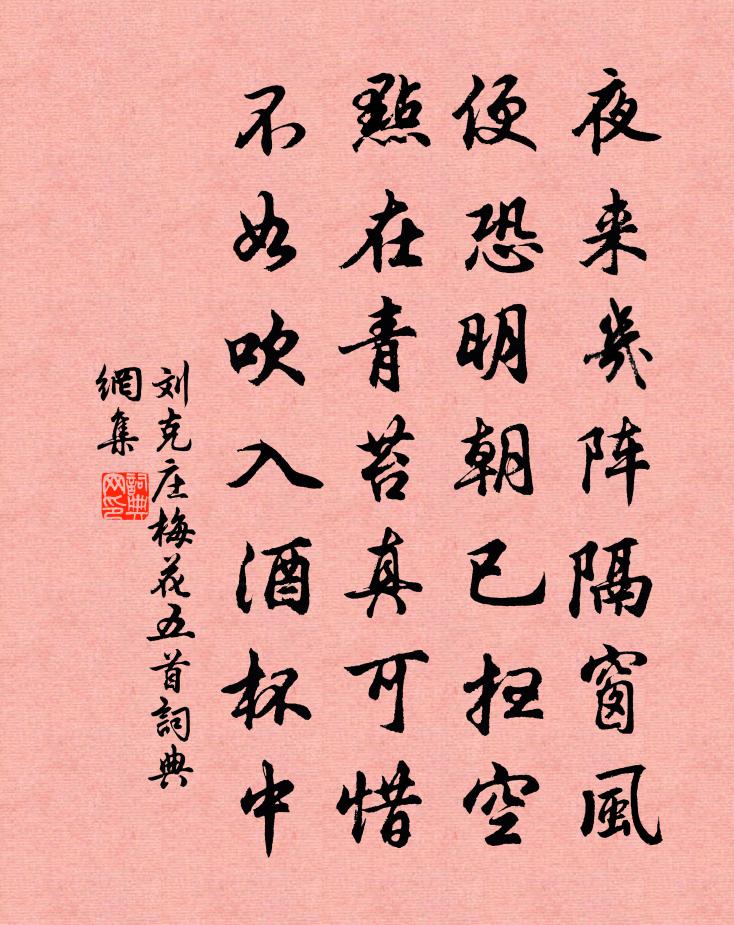 夜来幾阵隔窗風
便恐明朝已扫空
點在青苔真可惜
不如吹入酒杯中
刘克庄梅花五首詞典
網集
詞典
网印